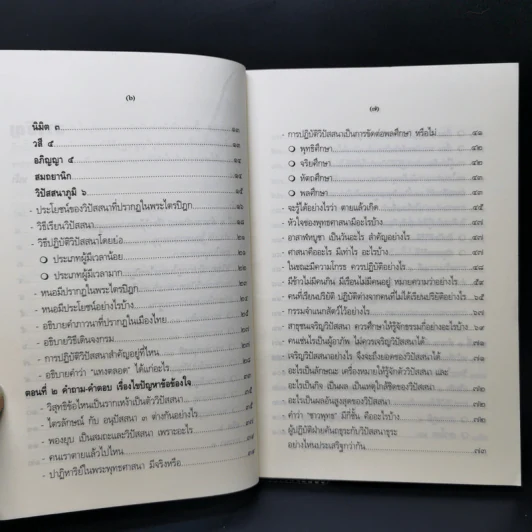 (๖)
นิมิต ๓ ๑๓
วสี ๕ ๑๓
อภิญญา ๕ ๑๔
สมถยานิก ๑๔
วิปัสสนาภูมิ ๖ ๑๕
- ประโยชน์ของวิปัสสนาที่ปรากฏในพระไตรปิฎก
- วิธีเรียนวิปัสสนา ๒๑
- วิธีปฏิบัติวิปัสสนาโดยย่อ ๒๑
❍ ประเภทผู้มีเวลาน้อย ๒๑
❍ ประเภทผู้มีเวลามาก ๒๑
- หนอมีปรากฏในพระไตรปิฎก
- หนอมีประโยชน์อย่างไรบ้าง
- อธิบายคำภาวนาที่ปรากฏในเมืองไทย ๒๕
- อธิบายวิธีเดินจงกรม
- การปฏิบัติวิปัสสนาสำคัญอยู่ที่ไหน
- อธิบายคำว่า "แทงตลอด" ได้แก่อะไร
ตอนที่ ๒ คำถาม-คำตอบ เรื่องไขปัญหาข้อข้องใจ
- วิสุทธิข้อไหนเป็นรากเหง้าเป็นตัววิปัสสนา
- ไตรลักษณ์ กับ อนุปัสสนา ๓ ต่างกันอย่างไร
- พองยุบ เป็นสมถะและวิปัสสนา เพราะอะไร
- คนเราตายแล้วไปไหน
- ปาฏิหาริย์ในพระพุทธศาสนา มีจริงหรือ
(๗)
- การปฏิบัติวิปัสสนาเป็นการขัดต่อพลศึกษา หรือไม่ ๔๑
❍ พุทธิศึกษา ๔๒
❍ จริยศึกษา ๔๒
❍ หัตถศึกษา ๔๒
❍ พลศึกษา ๔๒
- จะรู้ได้อย่างไรว่า ตายแล้วเกิด ๔๕
- หัวใจของพุทธศาสนามีอะไรบ้าง ๔๗
- อาสาฬหบูชา เป็นวันอะไร สำคัญอย่างไร ๔๗
- ศาสนาคืออะไร มีเท่าไร อะไรบ้าง ๔๗
- ในขณะมีความโกรธ ควรปฏิบัติอย่างไร ๔๘
- มีข้าวไม่มีคนกิน มีเรือนไม่มีคนอยู่ หมายความว่าอย่างไร
- คนที่เรียนปริยัติ ปฏิบัติต่างจากคนที่ไม่ได้เรียนปริยัติอย่างไร ๖๕
- กรรมจำแนกสัตว์ไว้อย่างไร
- สาธุชนเจริญวิปัสสนา ควรศึกษาให้รู้จักธรรมกี่อย่างอะไรบ้าง
- คนเช่นไรเป็นผู้อาภัพ ไม่ควรเจริญวิปัสสนา
- เจริญวิปัสสนาอย่างไร จึงจะถึงยอดของวิปัสสนาได้
- อะไรเป็นลักษณะ เครื่องหมายให้รู้จักตัววิปัสสนา และ
อะไรเป็นกิจ เป็นผล เป็นเหตุใกล้ชิดของวิปัสสนา
- อะไรเป็นผลอันสูงสุดของวิปัสสนา ๗๒
- คำว่า "ชาวพุทธ" มีกี่ชั้น คืออะไรบ้าง ๗๒
- ผู้ปฏิบัติฝ่ายคันถธุระกับวิปัสสนาธุระ
อย่างไหนประเสริฐกว่ากัน ๗๓